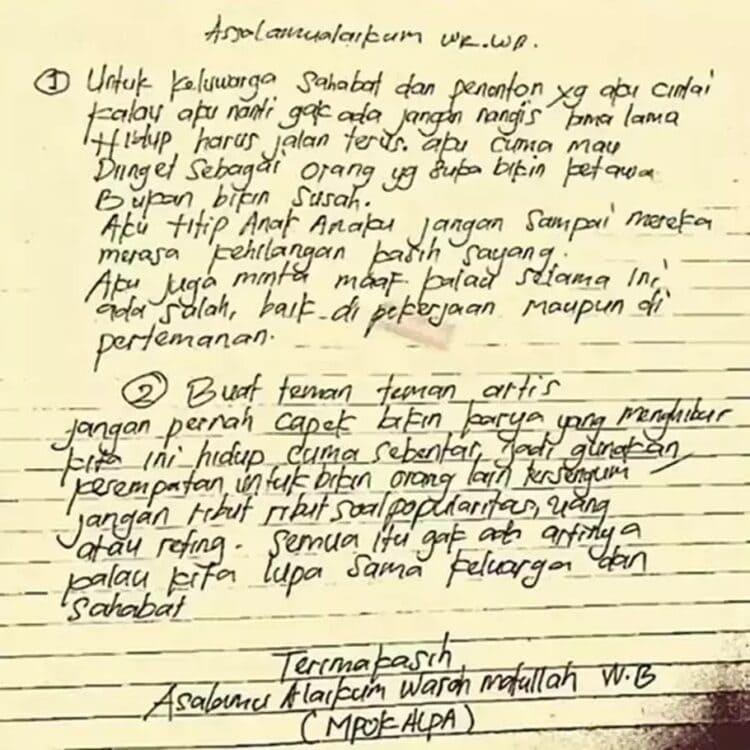 Assalamualaikum WR.WB.
① Untuk keluwarga sahabat dan penonton yg aku cintai
kalau aku nanti gak ada jangan nangis lama lama
Hidup harus jalan terus. aku cuma mau
Diinget sebagai orang yg suka bikin ketawa
Bukan bikin susah.
Aku titip Anak Anaku jangan sampai mereka
merasa kehilangan kasih sayang.
Aku juga minta maaf kalau selama ini
ada salah, baik di pekerjaan maupun di
pertemanan.
② Buat teman teman artis
jangan pernah capek bikin karya yang menghibur
kita ini hidup cuma sebentar, jadi gunakan
kesempatan untuk bikin orang lain tersenyum
jangan ribut ribut soal popularitas, uang
atau reting. semua itu gak ada artinya
kalau kita lupa sama keluarga dan
sahabat
Terimakasih
Asalamu Alaikum warah matullah W.B
(MPOK ALPA)